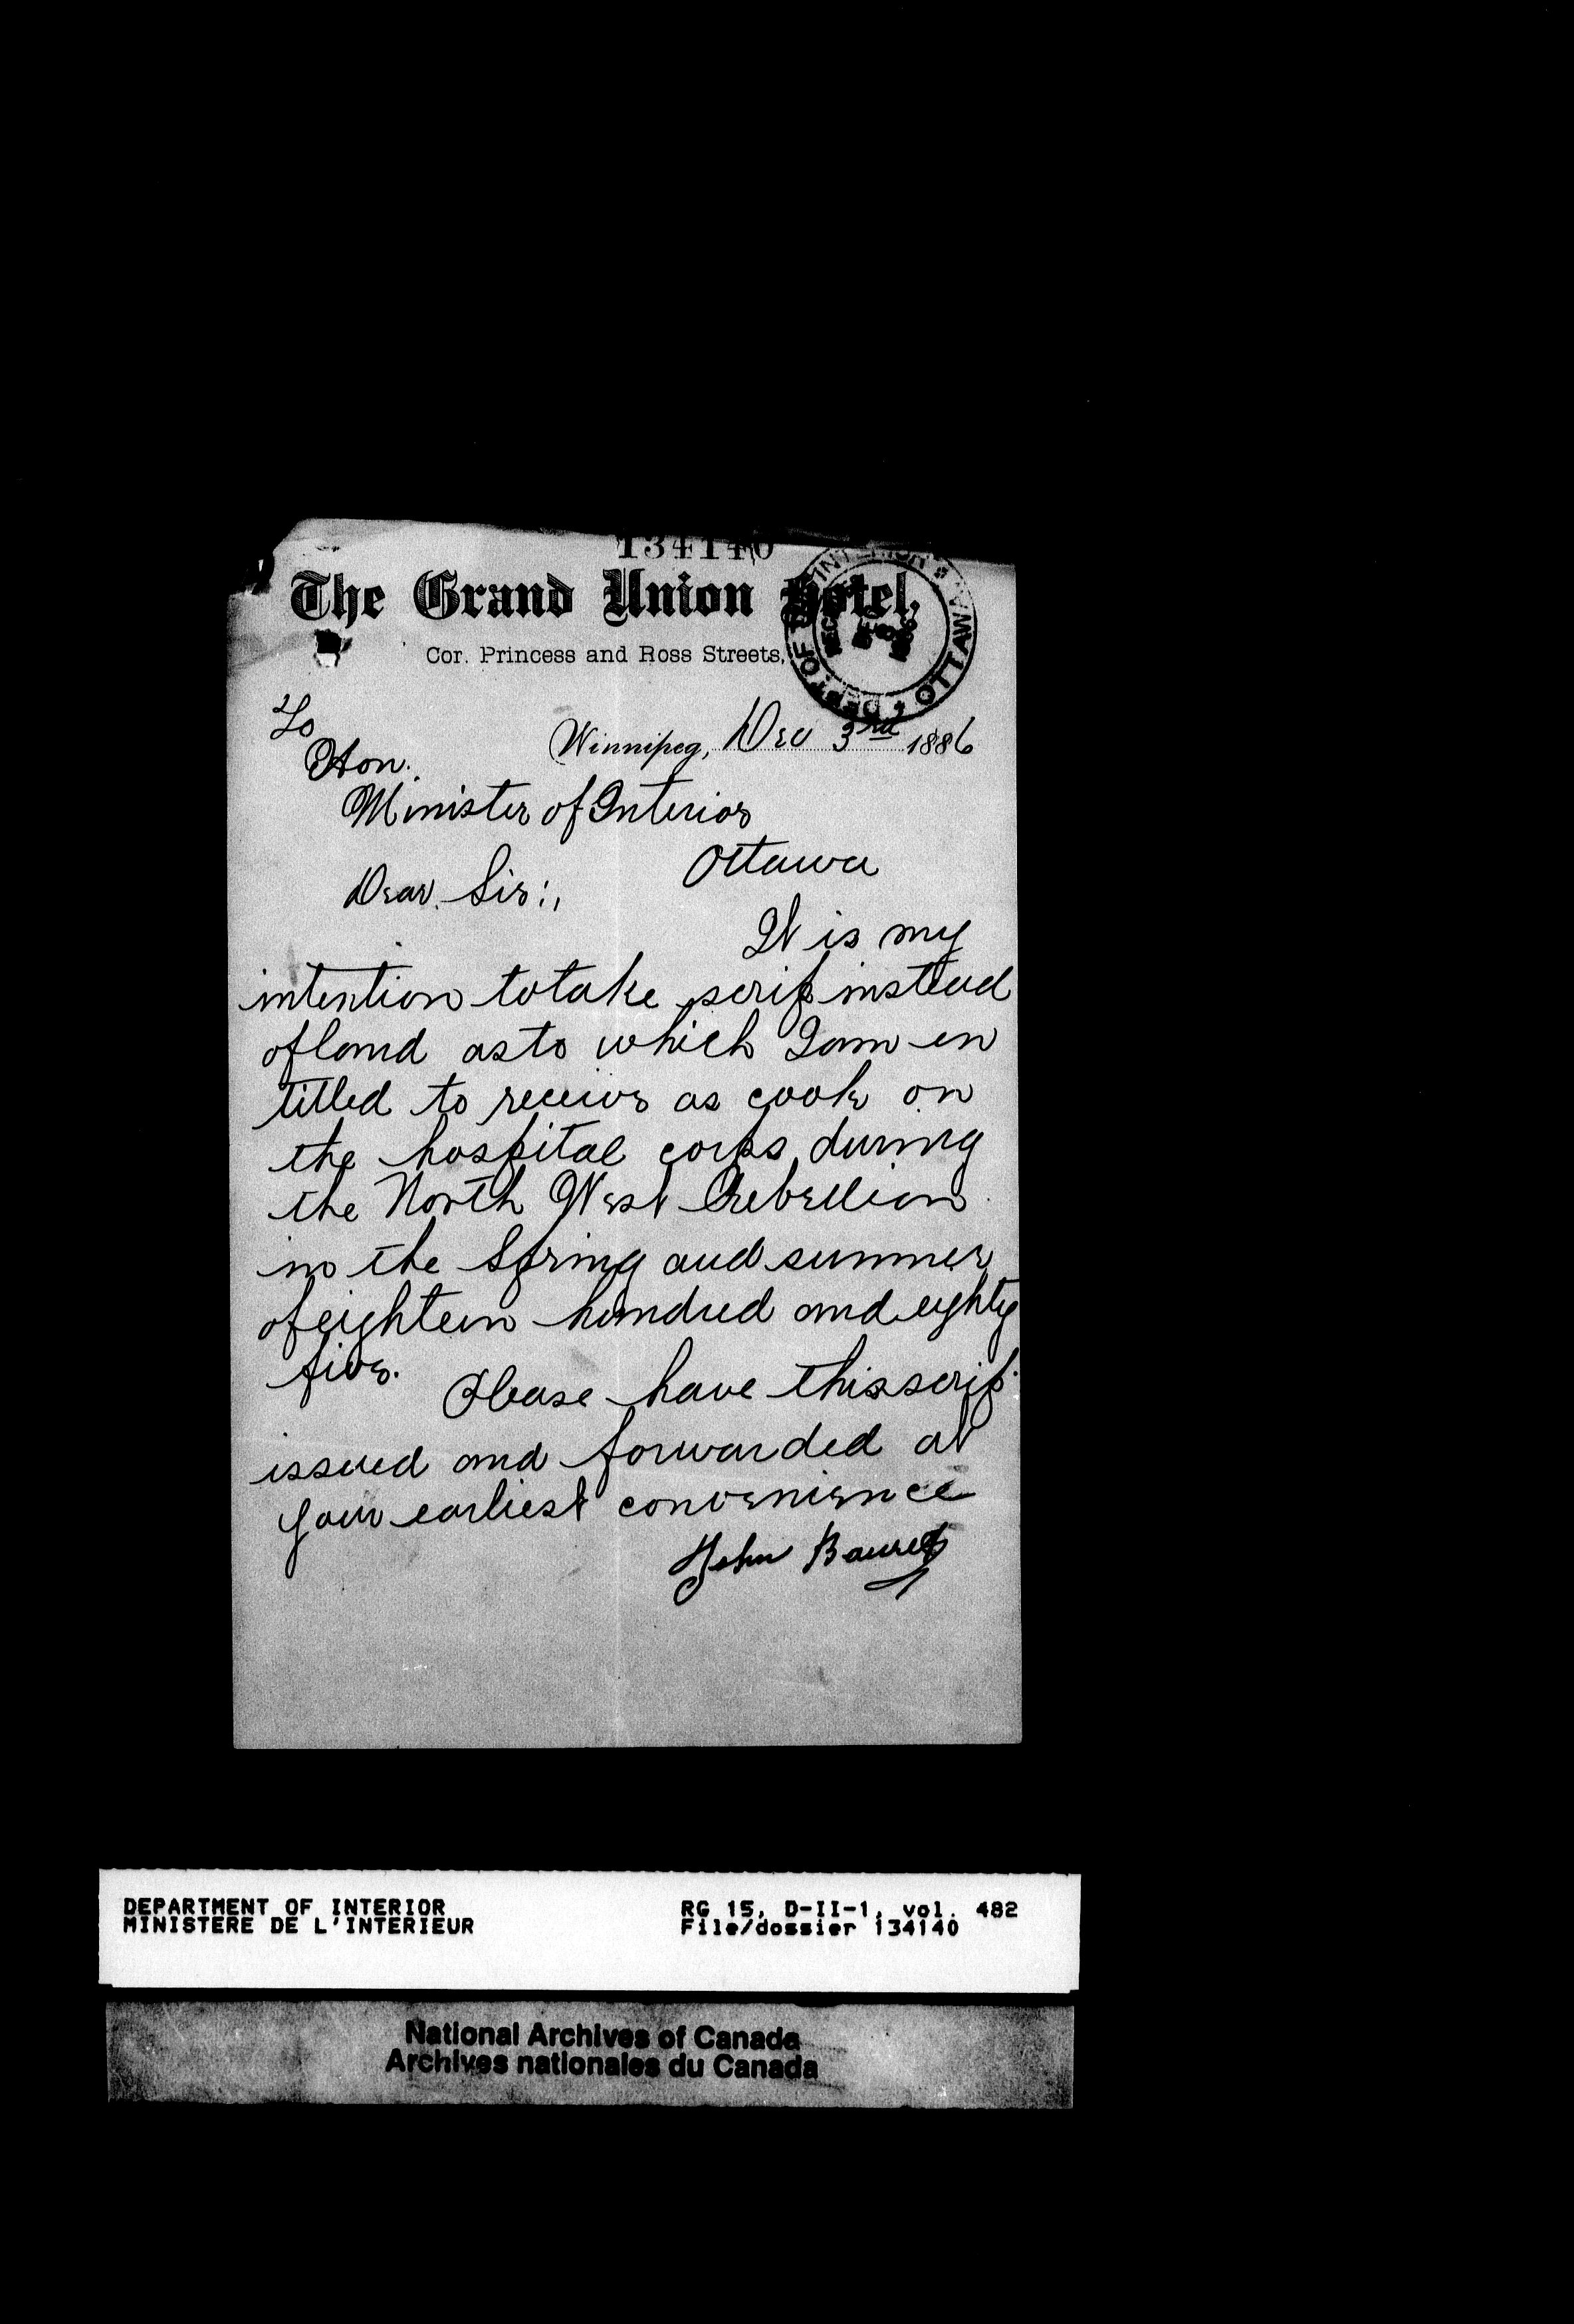 134140
The Grand Union Hotel,
Cor. Princess and Ross Streets,
DEPT OF INTERIOR OTTAWA
DEC 8 1886
To
Winnipeg, Dec 3rd 1886
Hon.
Minister of Interior
Ottawa
Dear Sir:,
It is my
intention to take scrip instead
of land as to which I am en
titled to receive as cook on
the hospital corps during
the North West Rebellion
in the Spring and summer
of eighteen hundred and eighty
five.
Please have this scrip
issued and forwarded at
your earliest convenience
John
DEPARTMENT OF INTERIOR
MINISTERE DE L'INTERIEUR
RG 15, D-II-1, vol. 482
File/dossier 134140
National Archives of Canada
Archives nationales du Canada